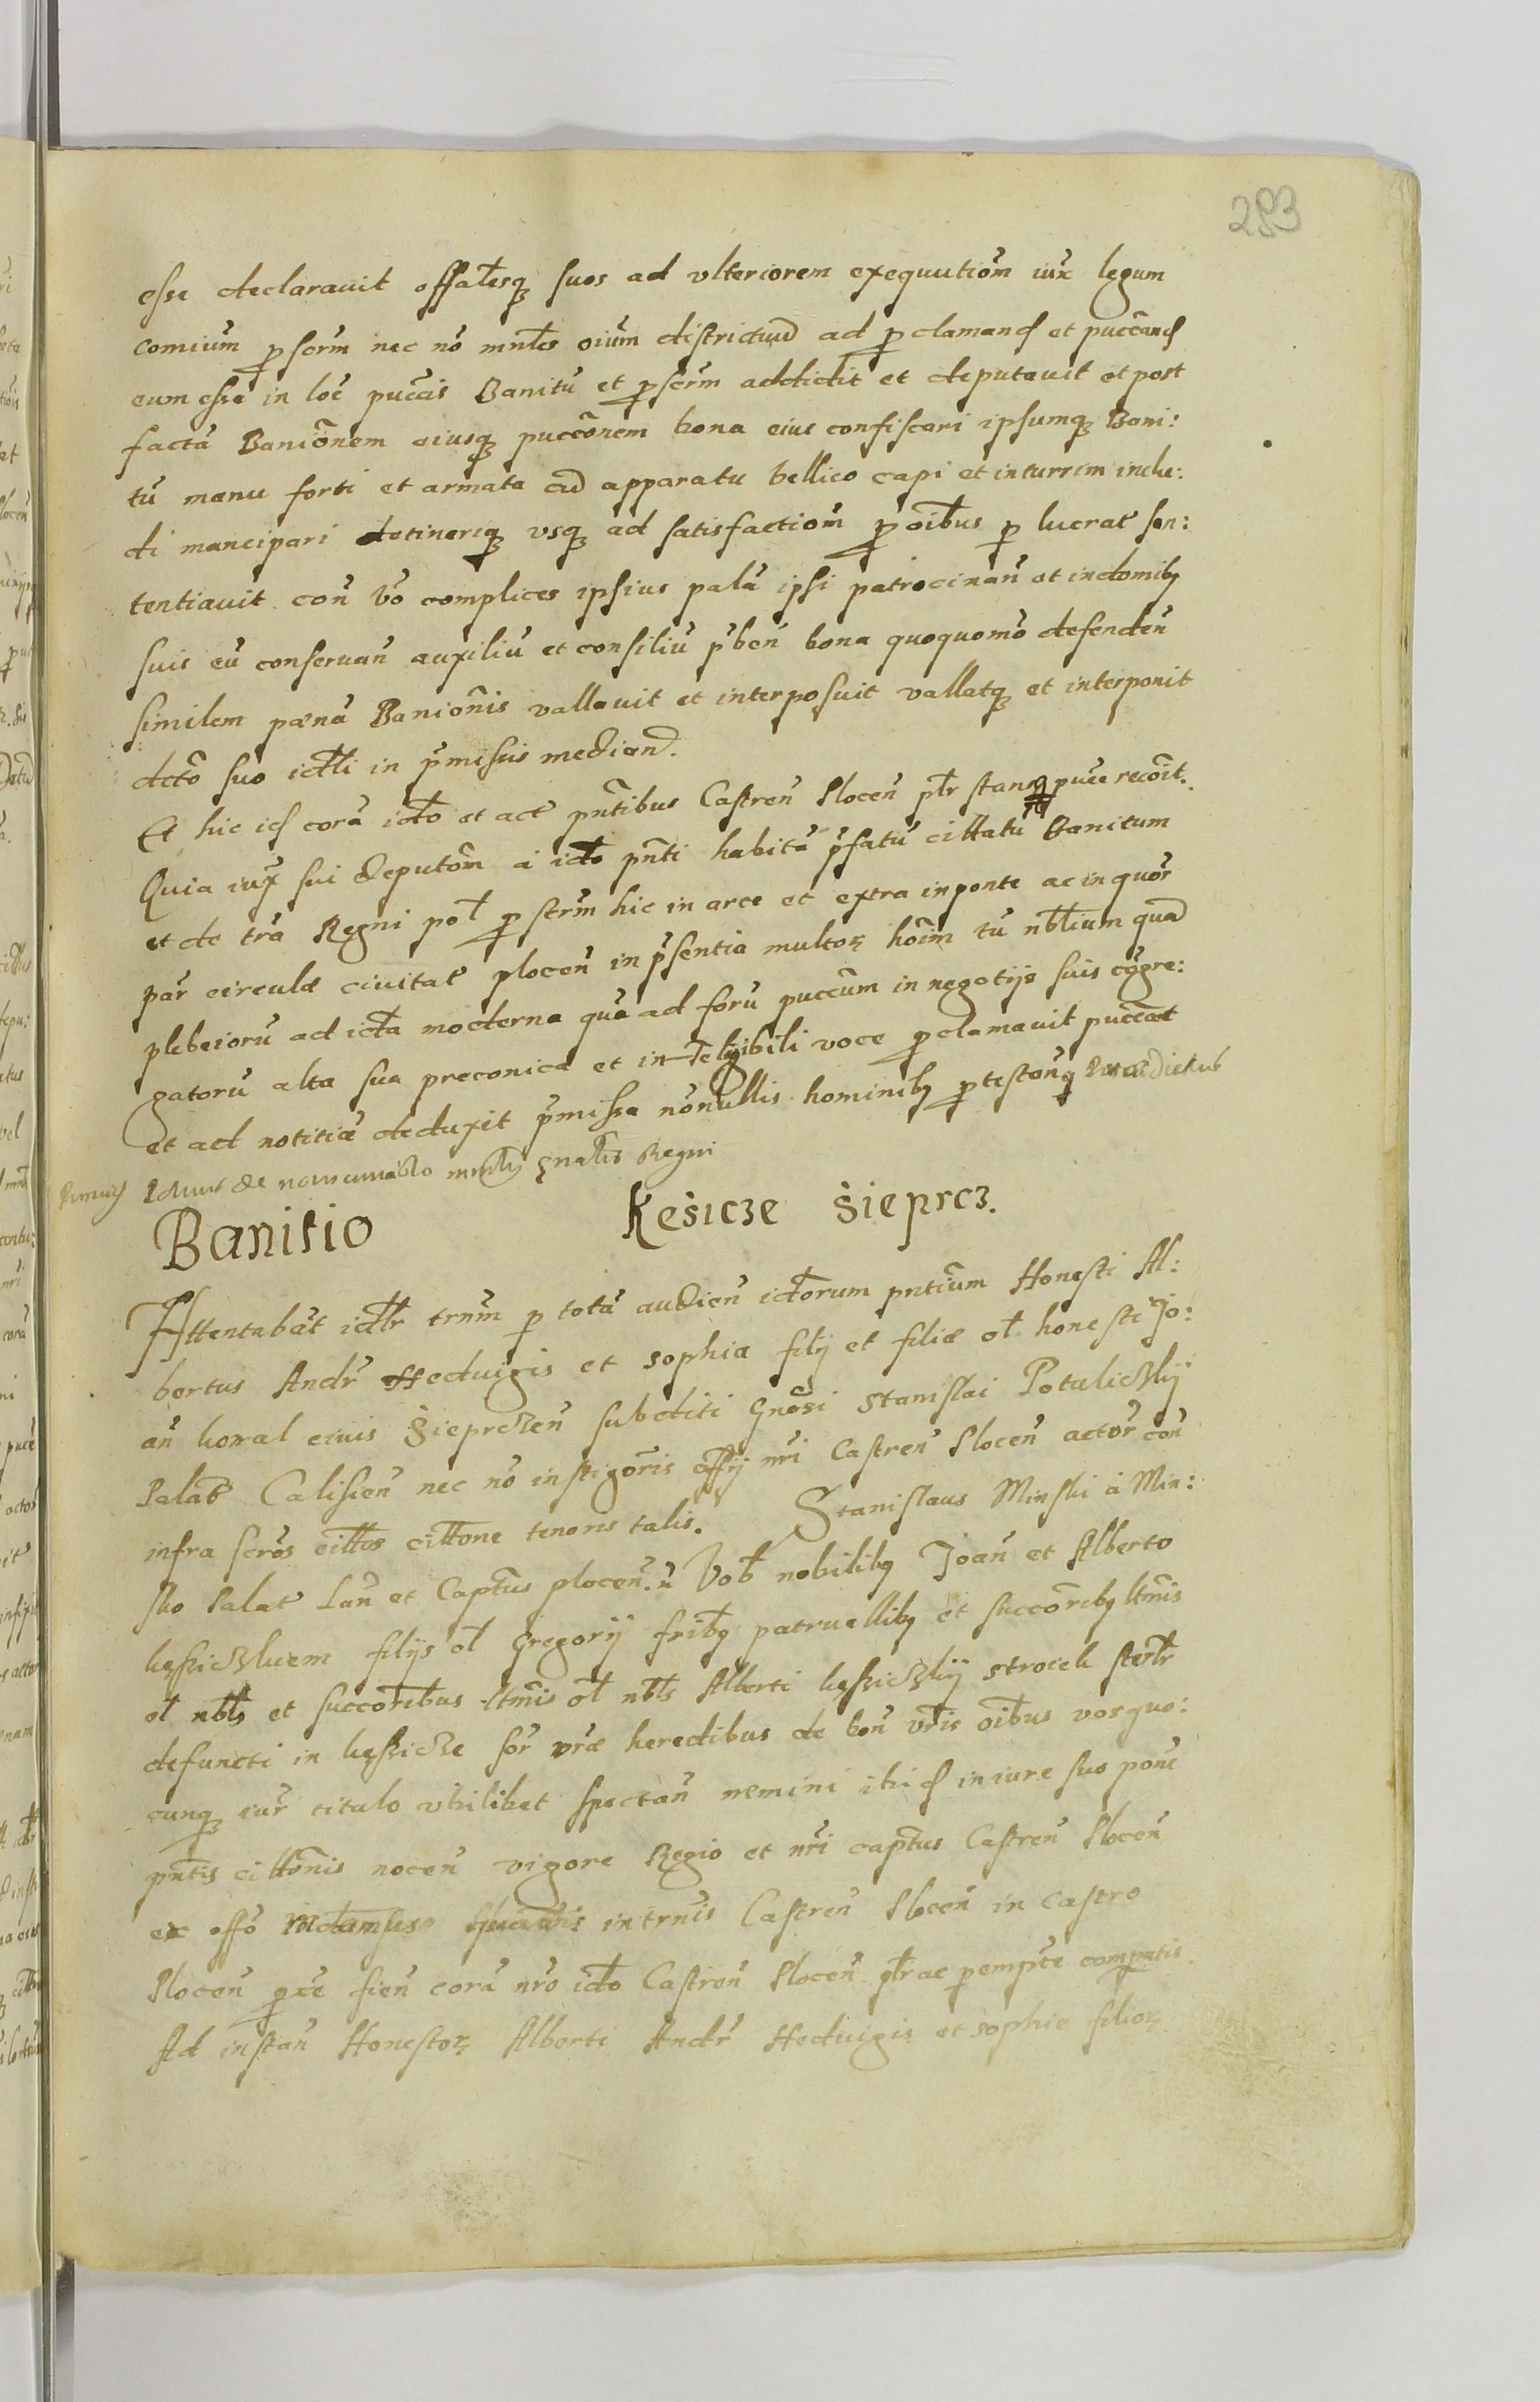 293
esse declarauit offalesq suos ad vlteriorem exequutiom iux legum
comium pscrm nec no mnles oium districtuu ad pclamand et puccand
eum esse in loc puccis Banitu et pscrm addidit et deputauit et post
facta Banionem eiusq pucconem bona eius confiscari ipsumq Bani:
tu manu forti et armata cu apparatu bellico capi et in turrim inclu:
di mancipari detineriq vsq ad satisfactiom p oibus p lucrat sen:
tentiauit con vo complices ipsius pala ipsi patrocinan et in domibq
suis eu conseruan auxiliu et consiliu pben bona quoquomo defenden
similem pæna Banionis vallauit et interposuit vallatq et interponit
dcto suo ictli in pmissis median.
Et hic id cora icto et act pntibus Castren Plocen plr stans puce recoit.
Quia iux sui deputom a icto pnti habita pfatu cittatu Banitum
et de tra Regni pol pscrm hic in arce et extra in ponte ac in quor
par circulæ ciuitat plocen in psentia multor hoim tu nblium qua
plebeioru ad icta moderna qua ad foru puccum in negotijs suis cogre:
gatoru alta sua preconica et intelligibili voce pclamauit puccat
et ad notitia deduxit pmissa nonullis hominibq ptestonq
Regni
Banitio Kesicze Sieprcz.
Attentabat ictlr trnm p tota audien ictorum pntium Honesti Al:
bertus Andr Heduigis et sophia filij et filiæ ol honesti Jo:
an kowal ciuis Sieprczen subditi Gnosi Stanislai Potuliczkij
Palat Calisien nec no instigoris offij nri Castren Plocen actor con
infra scros cittos cittone tenoris talis. Stanislaus Minski a Min:
sko Palat Lan et Captus plocen. Vob nobilibq Joan et Alberto
kęsziczkiem filijs ol Gregorij fribq patruelibq et succoribq ltmis
ol nbls et succoribus ltmis ol nbls Alberti kęsziczkij stroieh sterlr
defuncti in kęszicze sor vræ heredibus de bon vris oibus vosquo:
cunq iur titulo vbilibet spectan nemini ibid in iure suo pone
pntis cittonis nocen vigore Regio et nri captus Castren Plocen
ex offo Mdamus in trnis Castren Plocen in castro
Plocen pxe fien cora nro icto Castren Plocen plr ac pempte compatis
Ad instan Honestor Alberti Andr Heduigis et sophie filior